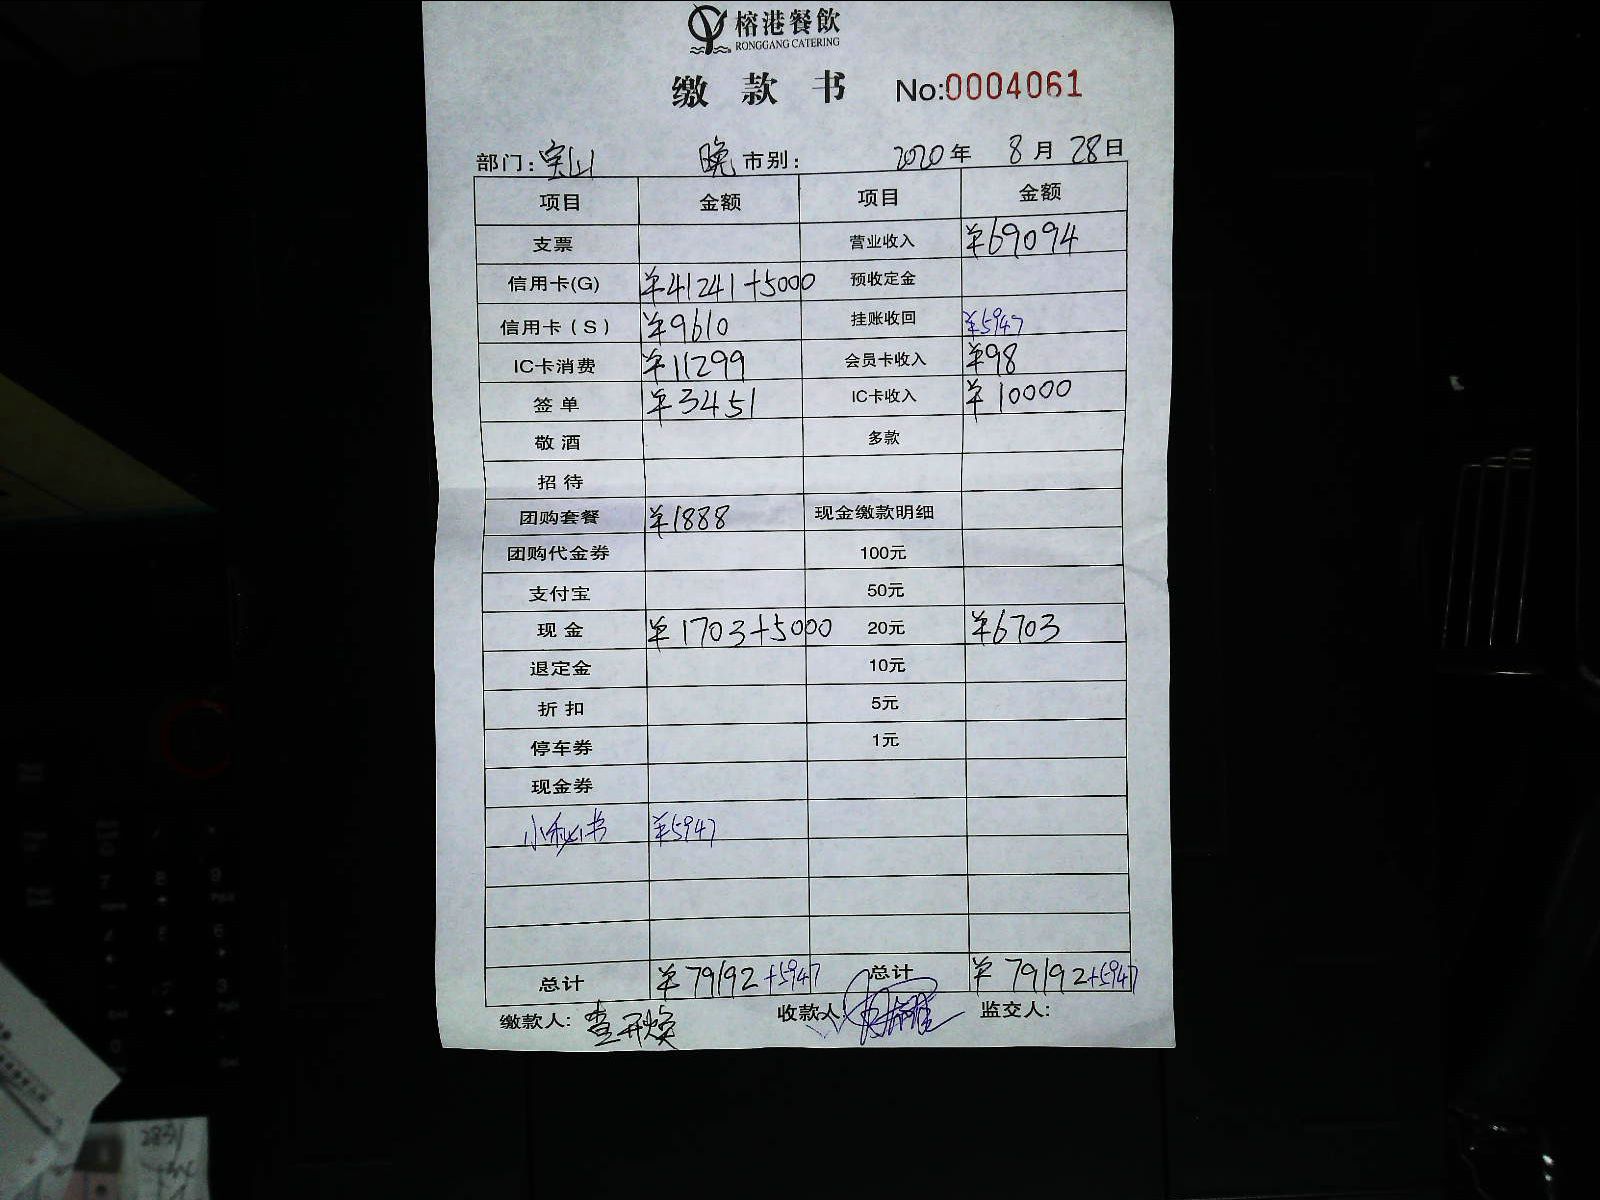 榕港餐飲
RONGGANG CATERING
缴款书 No:0004061
部门:宝山 晚市别: 2020年 8月 28日
项目 金额 项目 金额
支票 营业收入 ¥69094
信用卡(G) ¥41241+5000 预收定金
信用卡(S) ¥9610 挂账收回 ¥5947
IC卡消费 ¥11299 会员卡收入 ¥98
签单 ¥3451 IC卡收入 ¥10000
敬酒 多款
招待
团购套餐 ¥1888 现金缴款明细
团购代金券 100元
支付宝 50元
现金 ¥1703+5000 20元 ¥6703
退定金 10元
折扣 5元
停车券 1元
现金券
小秘书 ¥5947
总计 ¥79192+5947 总计 ¥79192+5947
缴款人:查开焕 收款人: 监交人: